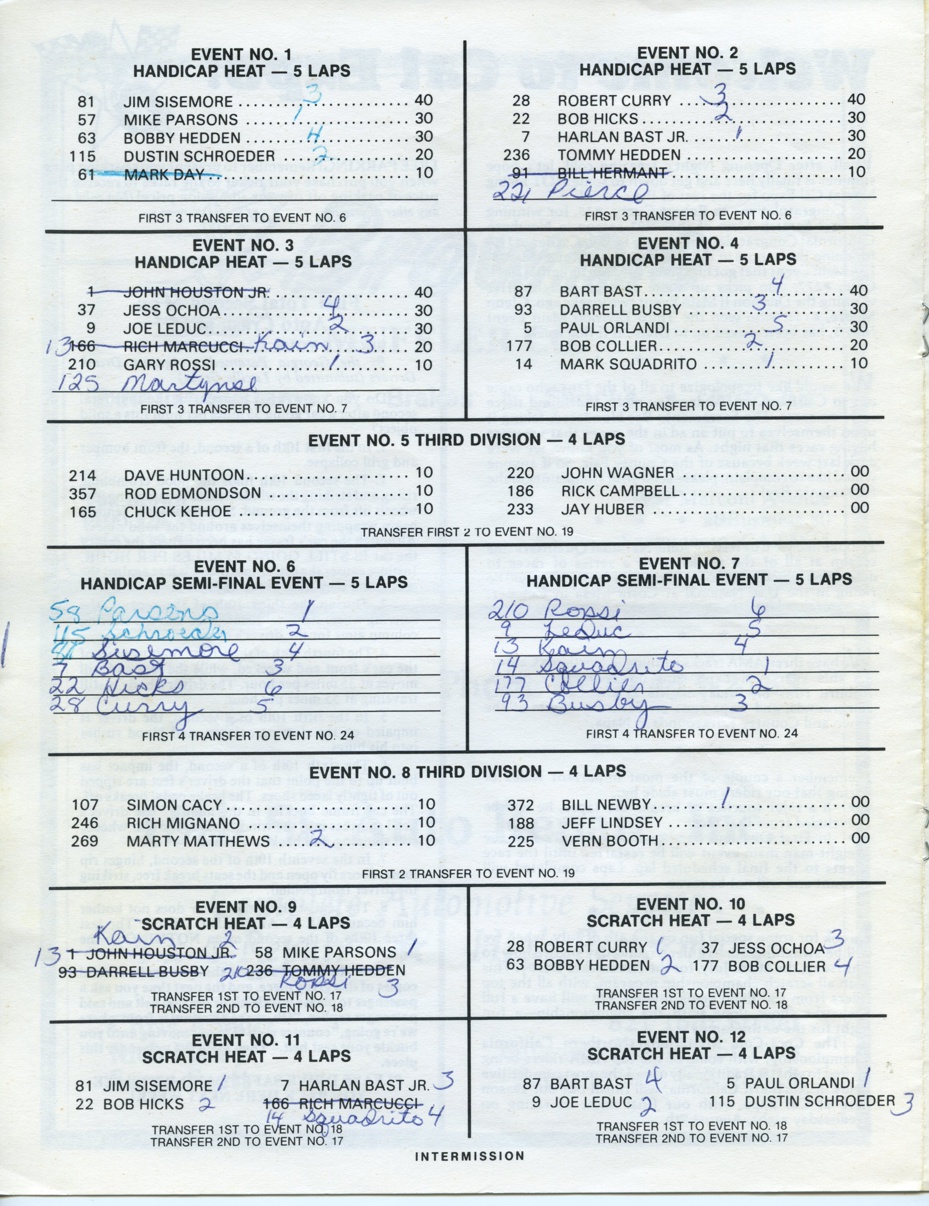 EVENT NO. 1
HANDICAP HEAT — 5 LAPS
81 JIM SISEMORE 3 40
57 MIKE PARSONS 1 30
63 BOBBY HEDDEN 4 30
115 DUSTIN SCHROEDER 2 20
61 MARK DAY 10
FIRST 3 TRANSFER TO EVENT NO. 6
EVENT NO. 2
HANDICAP HEAT — 5 LAPS
28 ROBERT CURRY 3 40
22 BOB HICKS 2 30
7 HARLAN BAST JR. 1 30
236 TOMMY HEDDEN 20
91 BILL HERMANT 10
221 Pierce
FIRST 3 TRANSFER TO EVENT NO. 6
EVENT NO. 3
HANDICAP HEAT — 5 LAPS
1 JOHN HOUSTON JR. 40
37 JESS OCHOA 4 30
9 JOE LEDUC 2 30
13 166 RICH MARCUCCI Kain 3 20
210 GARY ROSSI 1 10
125 Martynse
FIRST 3 TRANSFER TO EVENT NO. 7
EVENT NO. 4
HANDICAP HEAT — 5 LAPS
87 BART BAST 4 40
93 DARRELL BUSBY 3 30
5 PAUL ORLANDI 5 30
177 BOB COLLIER 2 20
14 MARK SQUADRITO 1 10
FIRST 3 TRANSFER TO EVENT NO. 7
EVENT NO. 5 THIRD DIVISION — 4 LAPS
214 DAVE HUNTOON 10
357 ROD EDMONDSON 10
165 CHUCK KEHOE 10
220 JOHN WAGNER 00
186 RICK CAMPBELL 00
233 JAY HUBER 00
TRANSFER FIRST 2 TO EVENT NO. 19
EVENT NO. 6
HANDICAP SEMI-FINAL EVENT — 5 LAPS
58 Parsons 1
115 Schroeder 2
81 Sisemore 4
7 Bast 3
22 Hicks 6
28 Curry 5
FIRST 4 TRANSFER TO EVENT NO. 24
EVENT NO. 7
HANDICAP SEMI-FINAL EVENT — 5 LAPS
210 Rossi 6
9 LeDuc 5
13 Kain 4
14 Squadrito 1
177 Collier 2
93 Busby 3
FIRST 4 TRANSFER TO EVENT NO. 24
EVENT NO. 8 THIRD DIVISION — 4 LAPS
107 SIMON CACY 10
246 RICH MIGNANO 10
269 MARTY MATTHEWS 2 10
372 BILL NEWBY 1 00
188 JEFF LINDSEY 00
225 VERN BOOTH 00
FIRST 2 TRANSFER TO EVENT NO. 19
EVENT NO. 9
SCRATCH HEAT — 4 LAPS
Kain 2
13 1 JOHN HOUSTON JR. 58 MIKE PARSONS 1
93 DARRELL BUSBY 210 236 TOMMY HEDDEN
Rossi 3
TRANSFER 1ST TO EVENT NO. 17
TRANSFER 2ND TO EVENT NO. 18
EVENT NO. 10
SCRATCH HEAT — 4 LAPS
28 ROBERT CURRY 1 37 JESS OCHOA 3
63 BOBBY HEDDEN 2 177 BOB COLLIER 4
TRANSFER 1ST TO EVENT NO. 17
TRANSFER 2ND TO EVENT NO. 18
EVENT NO. 11
SCRATCH HEAT — 4 LAPS
81 JIM SISEMORE 1 7 HARLAN BAST JR. 3
22 BOB HICKS 2 166 RICH MARCUCCI
14 Squadrito 4
TRANSFER 1ST TO EVENT NO. 18
TRANSFER 2ND TO EVENT NO. 17
EVENT NO. 12
SCRATCH HEAT — 4 LAPS
87 BART BAST 4 5 PAUL ORLANDI 1
9 JOE LEDUC 2 115 DUSTIN SCHROEDER 3
TRANSFER 1ST TO EVENT NO. 18
TRANSFER 2ND TO EVENT NO. 17
INTERMISSION